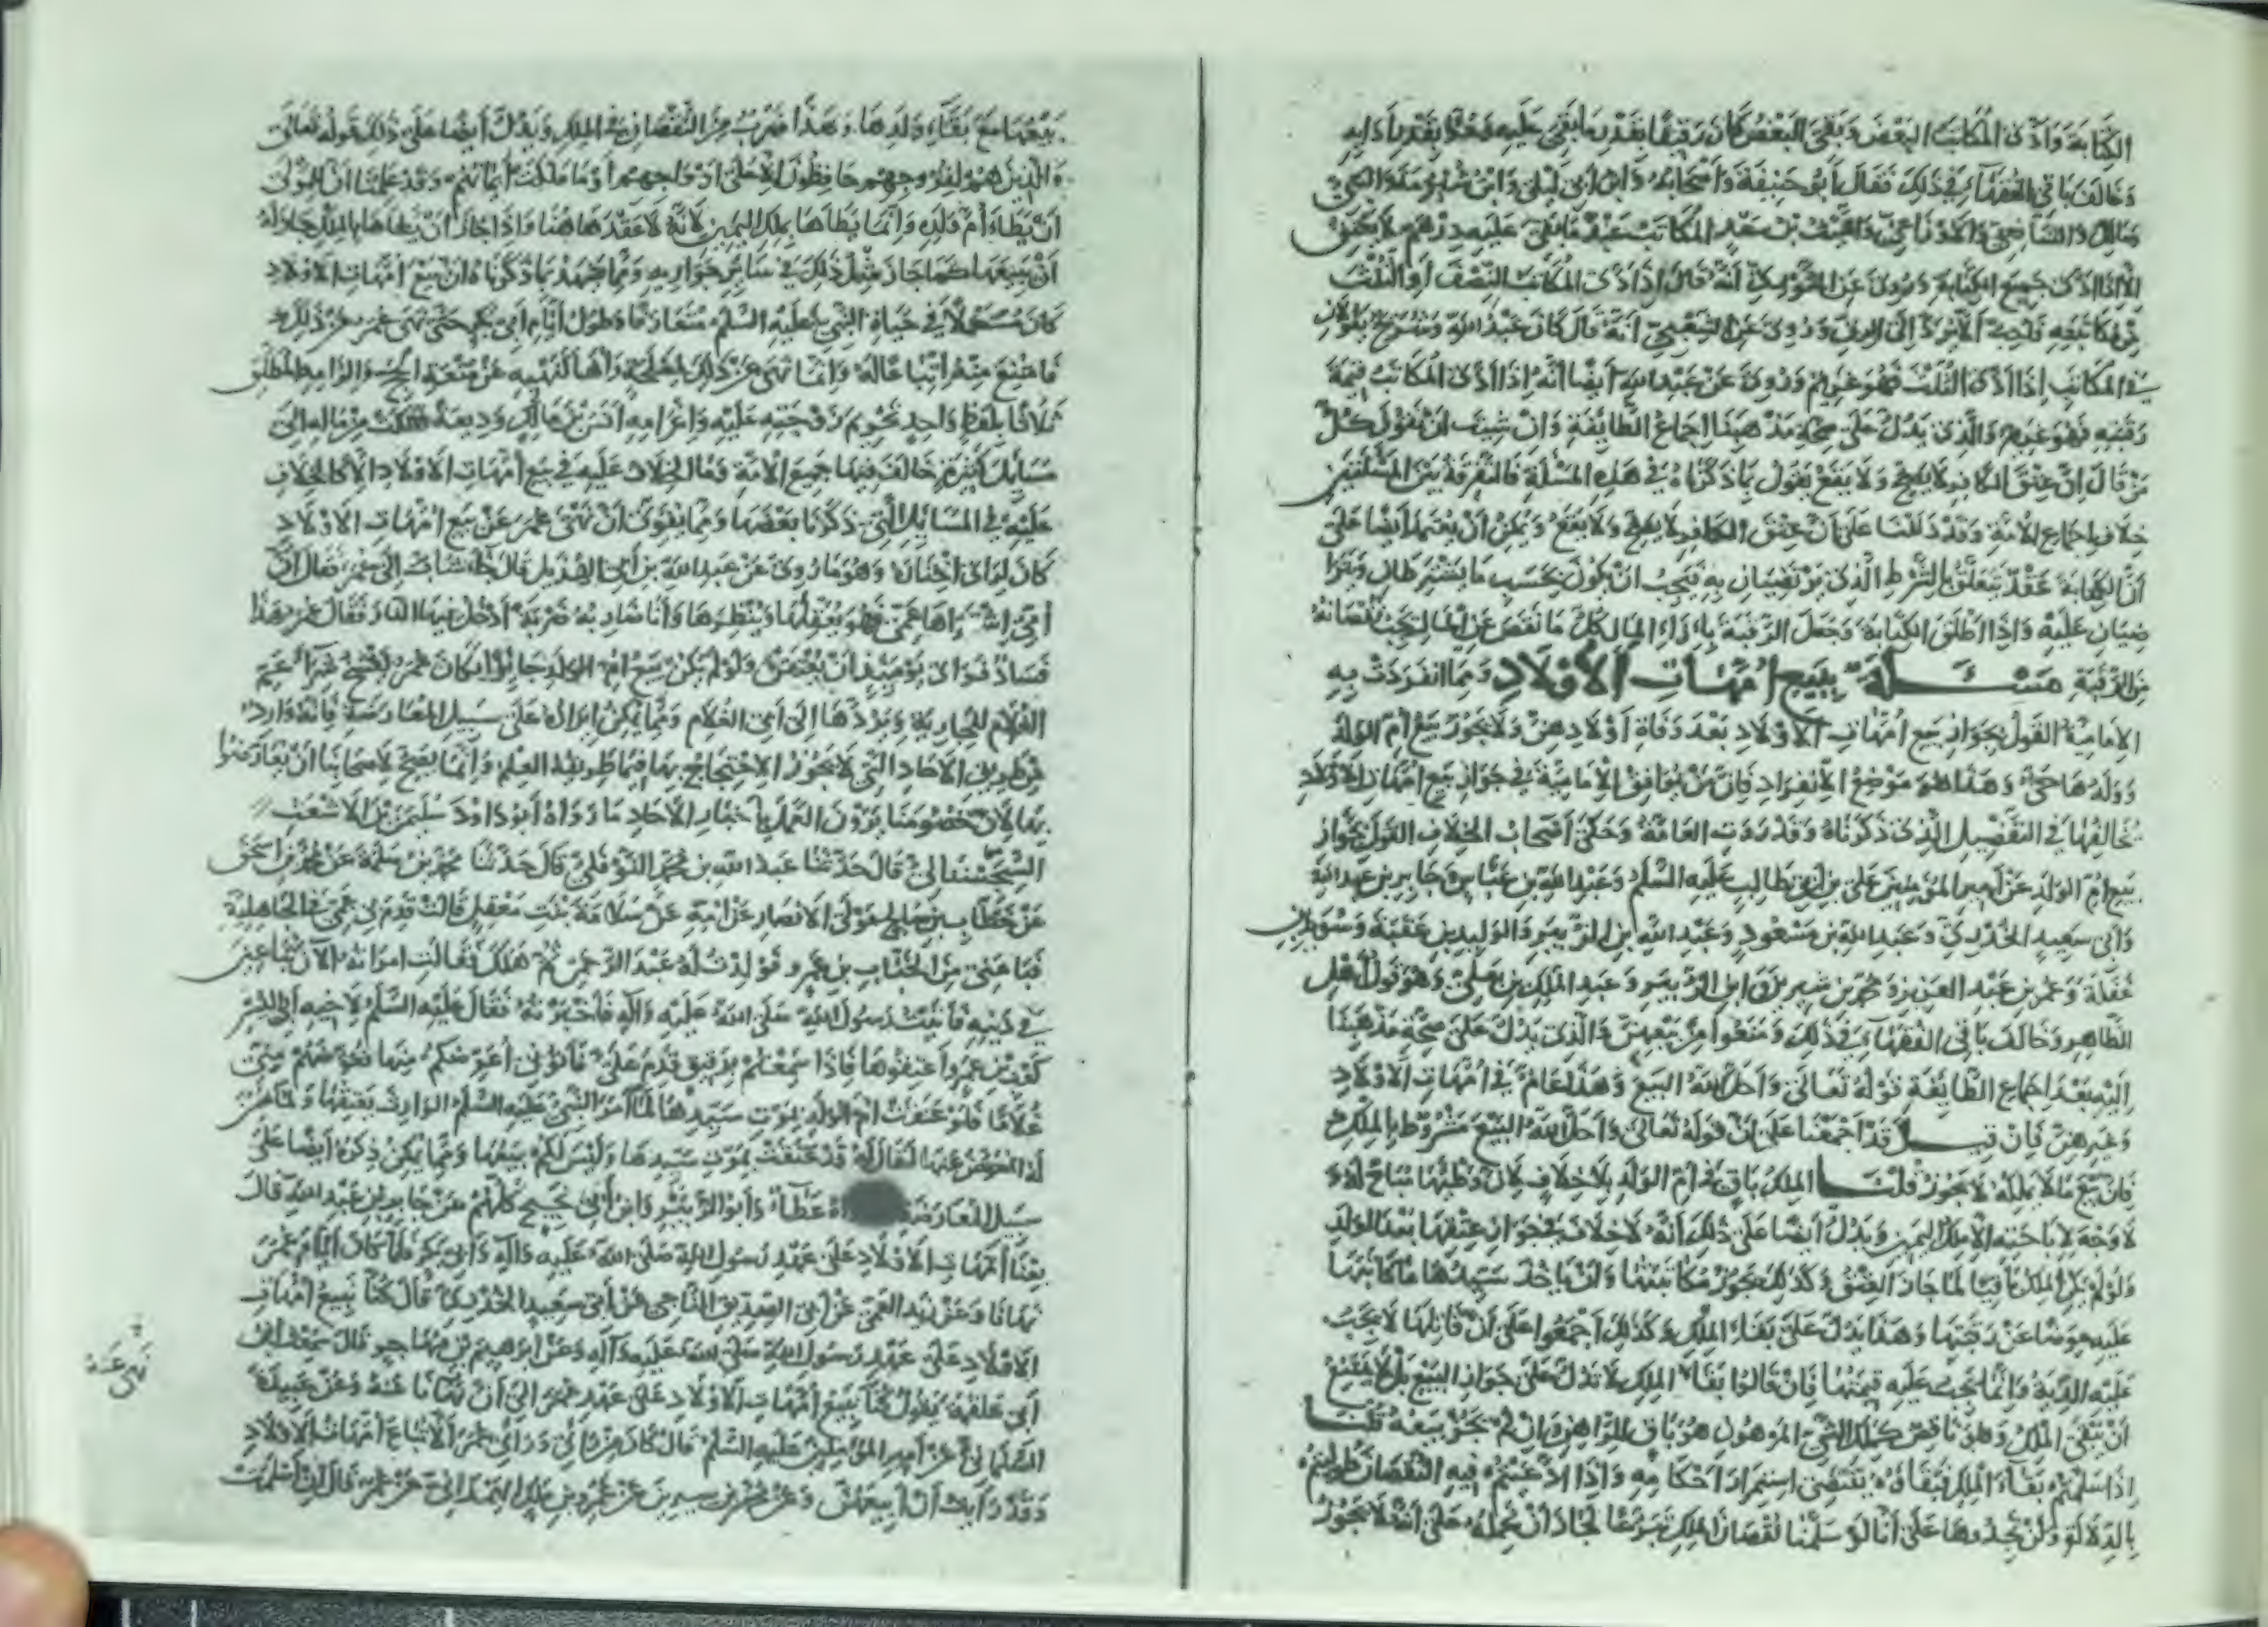 الكتابة وأدى المكاتب البعض وبقي البعض كان رقيقا بقدر ما بقي عليه وحرا بقدر ما أداه
وخالف باقي الفقهاء في ذلك فقال أبو حنيفة وأصحابه وابن أبي ليلى وابن شبرمة والبتي
ومالك والشافعي والاوزاعي والليث بن سعد المكاتب عبد ما بقي عليه درهم لا يعتق
الا اذا ادى جميع الكتابة وروي عن الثوري انه قال اذا ادى المكاتب النصف أو الثلث
من مكاتبته فأحب الا يرد إلى الرق وروي عن الشعبي انه قال كان عبد الله وشريح يقولان
في المكاتب اذا ادى الثلث فهو غريم وروي عن عبد الله أيضا انه اذا ادى المكاتب قيمة
رقبته فهو غريم والذي يدل على صحة مذهبنا اجماع الطائفة وان شيت ان نقول كل
من قال ان عتق الكافر لا يصح ولا يقع يقول بما ذكرناه في هذه المسئلة فالتفرقة بين المسئلتين
خلاف اجماع الأمة وقد دللنا على ان عتق الكافر لا يصح ولا يقع ويمكن أن يعتمد أيضا على
ان الكتابة عقد يتعلق بالشرط الذي يرتضيان به فيجب ان يكون بحسب ما يشترطان ويترا
ضيان عليه واذا اطلق الكتابة وجعل الرقبة بازاء المال فكل ما نقص من المال يجب نقصانه
من الرقبة مسئلة بيع امهات الأولاد ومما انفردت به
الامامية القول بجواز بيع امهات الاولاد بعد وفاة أولادهن ولا يجوز بيع أم الولد
وولدها حي وهذا هو موضع الانفراد فان من يوافق الامامية في جواز بيع امهات الاولاد
يخالفها في التفصيل الذي ذكرناه وقد روت العامة وحكى أصحاب الخلاف القول بجواز
بيع ام الولد عن أمير المؤمنين علي بن أبي طالب عليه السلم وعبد الله بن عباس وجابر بن عبد الله
وأبي سعيد الخدري وعبد الله بن مسعود وعبد الله بن الزبير والوليد بن عقبة وسويد بن
غفلة وعمر بن عبد العزيز ومحمد بن سيرين وابن الزبير وعبد الملك بن يعلى وهو قول اهل
الظاهر وخالف باقي الفقهاء في ذلك ومنعوا من بيعهن والذي يدل على صحة مذهبنا
الاجماع الطائفة قوله تعالى واحل الله البيع وهذا عام في امهات الاولاد
وغيرهن فان قيل قد اجمعنا على ان قوله تعالى واحل الله البيع مشروط بالملك
فان بيع ما لا يملكه لا يجوز قلنا الملك باق في أم الولد بلا خلاف لان وطئها مباح له و
لا وجه لاباحته الا ملك اليمين ويدل أيضا على ذلك أنه لا خلاف في جواز عتقها بعد الولد
ولو لم يكن الملك باقيا لما جاز العتق وكذلك يجوز مكاتبتها وان ياخذ سيدها ما كاتبها
عليه عوضا عن رقبتها وهذا يدل على بقاء الملك وكذلك أجمعوا على أن قاتلها لا يجب
عليه الدية وانما يجب عليه قيمتها فان قالوا بقاء الملك لا يدل على جواز البيع بل لا يمتنع
أن يبقى الملك وهو ناقص كملك الشيء المرهون هو باق للراهن وان لم يجز بيعه قلنا
اذا سلمتم بقاء الملك فبقاؤه يقتضي استمرار احكامه واذا ادعيتم فيه النقصان طولبتم
بالدلالة ولن تجدوها على أنا لو سلمنا نقصان الملك تبرعا لجاز أن نحمله على انه لا يجوز
بيعها مع بقاء ولدها وهذا ضرب من النقصان في الملك ويدل أيضا على ذلك قوله تعالى
والذين هم لفروجهم حافظون الا على ازواجهم أو ما ملكت أيمانهم وقد علمنا ان للمولى
ان يطاء أم ولده وانما يطاها بملك اليمين لانه لا عقد هاهنا واذا جاز ان يطاها بالملك جاز له
ان يبيعها كما جاز مثل ذلك في سائر جواريه ومما يشهد بما ذكرناه ان بيع امهات الاولاد
كان مستعملا في حياة النبي عليه السلم متعارفا وطول أيام أبي بكر حتى نهى عمر عن ذلك
فامتنع منه اتباعا له وانما نهى عن ذلك كنهيه عن متعة الحج والزامه المطلق
ثلاثا بلفظ واحد تحريم زوجته عليه واغرامه أنس بن مالك وديعة هلكت من ماله الى
مسائل كثيرة خالف فيها جميع الامة وما الخلاف عليه في بيع امهات الاولاد الا كالخلاف
عليه في المسائل التي ذكرنا بعضها ومما يقوى ان نهى عمر عن بيع امهات الاولاد
كان لرأي اختاره وهو ما روي عن عبد الله بن أبي الهذيل قال جاء شاب إلى عمر فقال ان
أمي اشتراها عمي فهو
فساد فرأى يوميذ ان يعتقن ولو لم يكن بيع ام الولد جايزا لكان عمر
الغلام للجارية ويردها الى أبي الغلام ومما يمكن ايراده على سبيل المعارضة فانه وارد
من طريق الاحاد التي لا يجوز الاحتجاج بها فيما طريقه العلم وانما يصح لاصحابنا ان يعارضوا
بها لأن خصومنا يرون العمل باخبار الاحاد ما رواه أبو داود سليمن بن الاشعث
السجستاني قال حدثنا عبد الله بن محمد النوفلي قال حدثنا محمد بن سلمة عن محمد بن اسحق
عن خطاب بن صالح مولى الانصار عن امه عن سلامة بنت معقل قالت قدم بي عمي في الجاهلية
فباعني من الحباب بن عمرو فولدت له عبد الرحمن ثم هلك فقالت امراته الآن تباعين
في دينه فأتيت رسول الله صلى الله عليه وآله فأخبرته فقال عليه السلم لاخيه أبي اليسر
كعب بن عمرو أعتقوها فاذا سمعتم برقيق قدم علي فأتوني أعوضكم منها فعوضهم مني
غلاما فلو عتقت ام الولد بموت سيدها لما أمر النبي عليه السلم الوارث بعتقها ولما ضمن
له العوض عنها لقال له قد عتقت بموت سيدها وليس لكم بيعها ومما يمكن ذكره أيضا على
سبيل المعارضة عطاء وأبو الزبير وابن أبي نجيح كلهم عن جابر بن عبد الله قال
بعنا أمهات الاولاد على عهد رسول الله صلى الله عليه وآله وأبي بكر فلما كان ايام عمر
نهانا وعن زيد العمي عن أبي الصديق الناجي عن أبي سعيد الخدري قال كنا نبيع امهات
الاولاد على عهد رسول الله صلى الله عليه وآله وعن ابرهيم بن مهاجر قال سمعت ابن
أبي علقمة يقول كنا نبيع أمهات الاولاد على عهد عمر الى أن نهانا عنه وعن عبيدة
السلماني عن أمير المؤمنين عليه السلم قال كان من رائي ورأي عمر ألا تباع امهات الاولاد
وقد رأيت أن أبيعهن وعن محمد بن سيرين عن عمرو بن مالك الهمداني عن عمر قال ان أسلمت